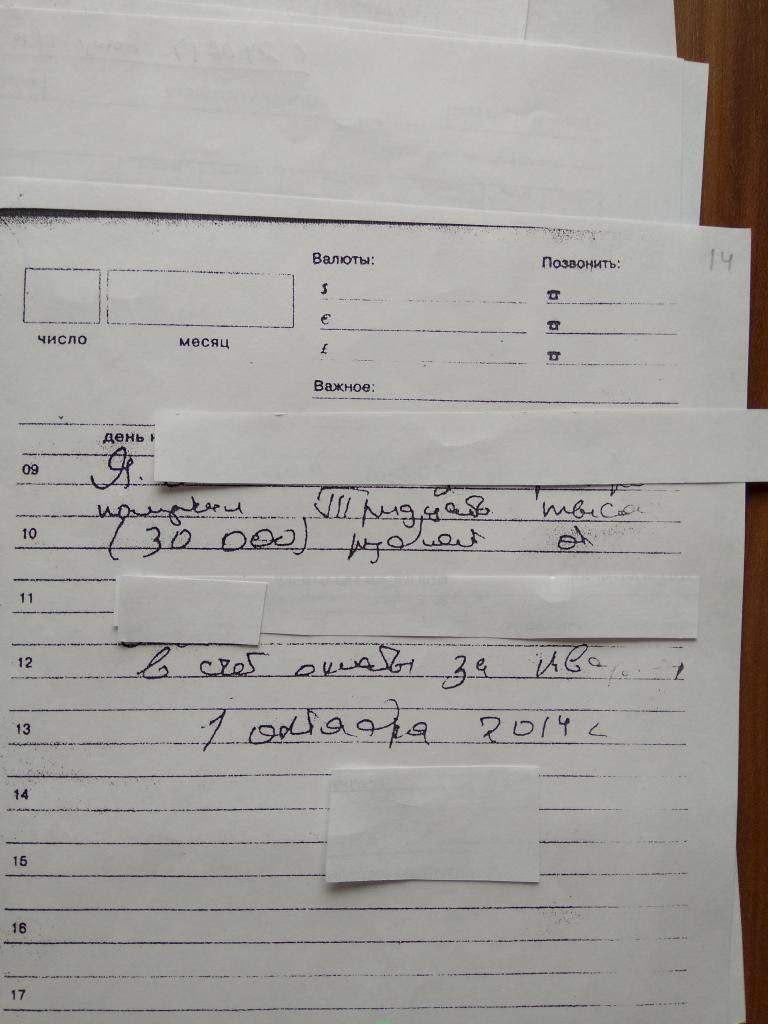 14
Валюты: Позвонить:
$
€
£
число месяц
Важное:
день
09 Я
получил тридцать тыся
10 (30 000) рублей от
11
12 в счет оплаты за
13 1 октября 2014 г
14
15
16
17